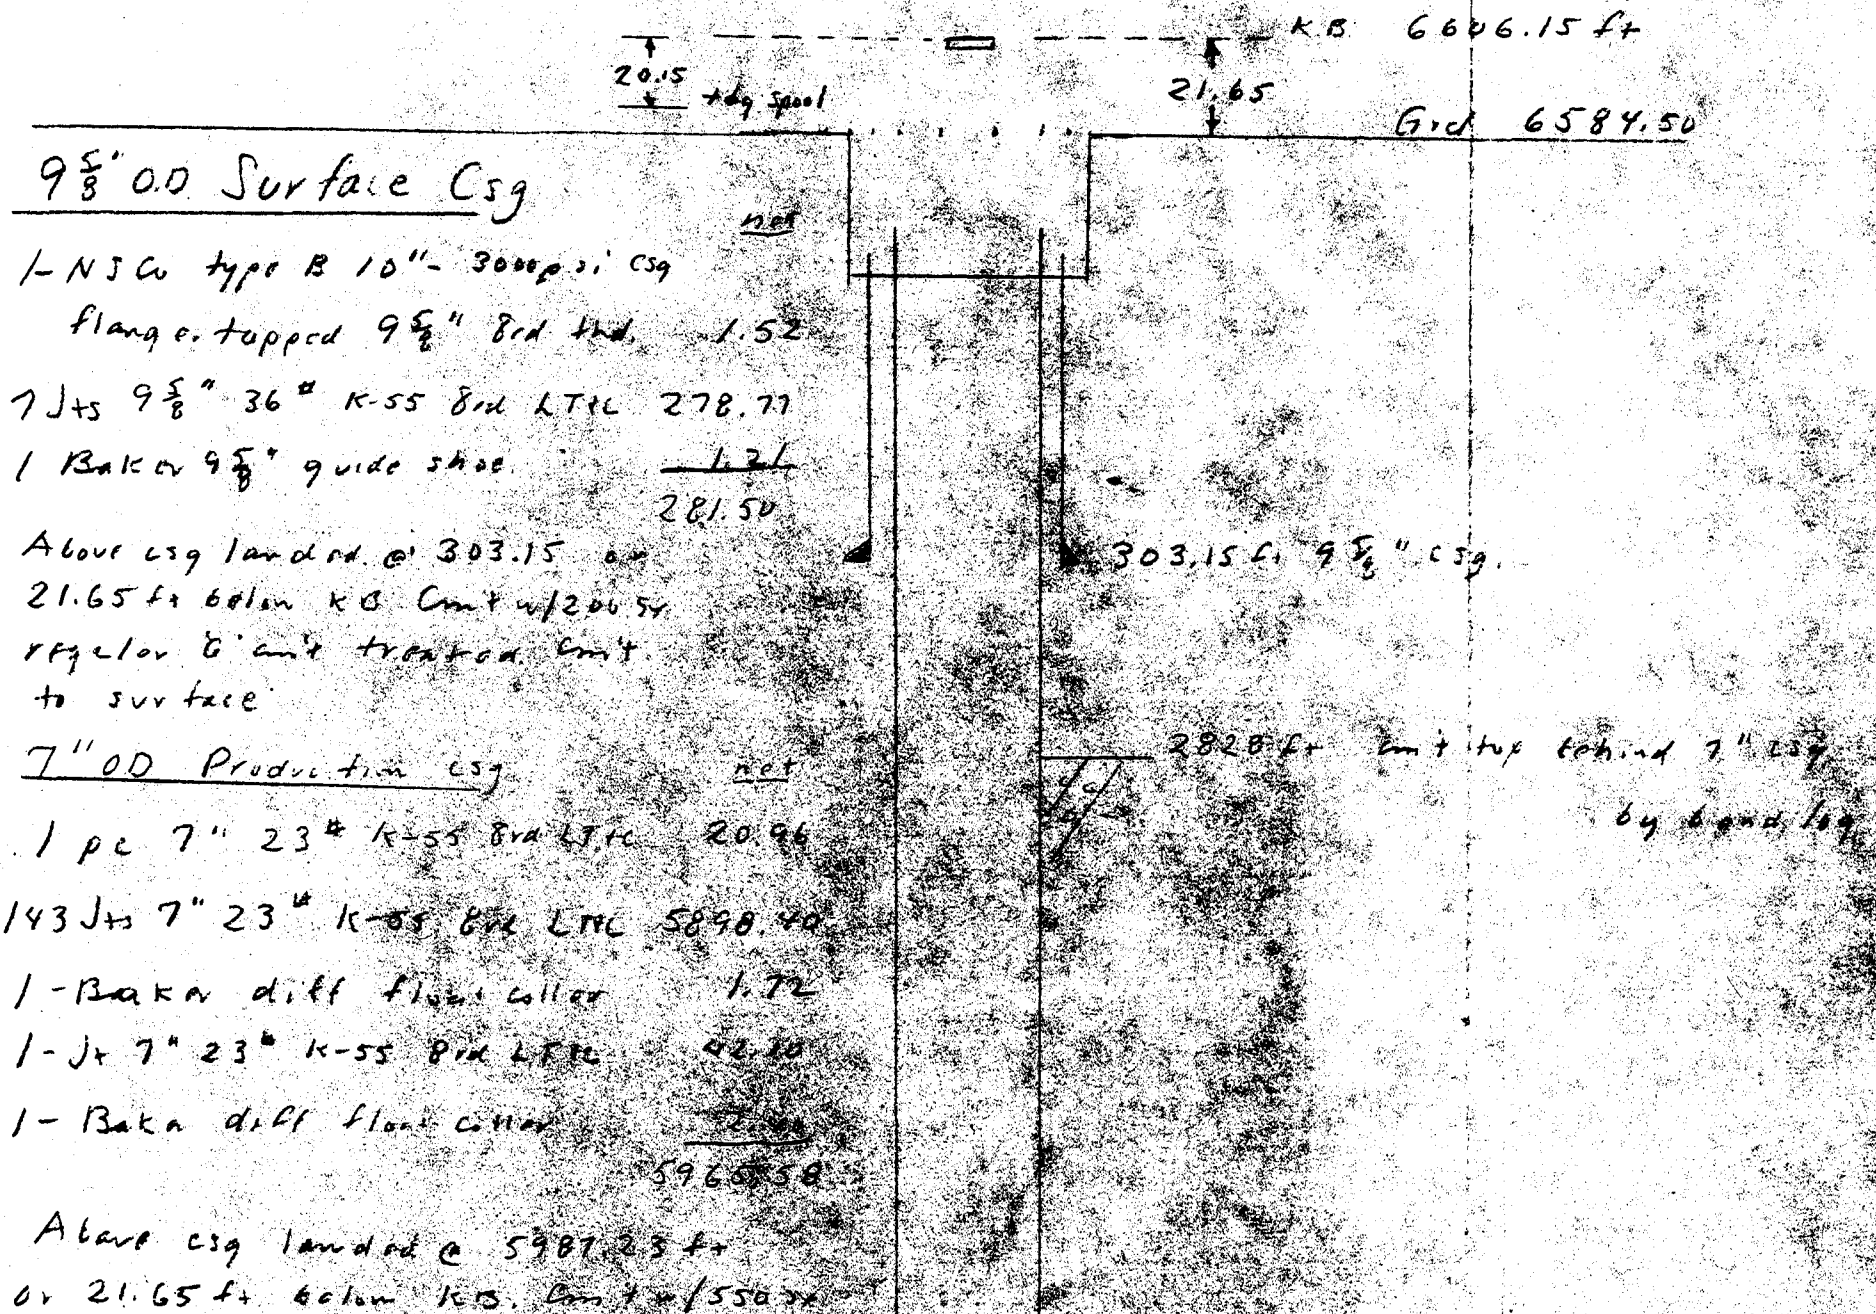 KB 6606.15 ft
20.15
tbg spool
21.65
Grd 6584.50
9 5/8" O.D Surface Csg
net
1- NSCo type B 10"- 3000psi csg
flange. tapped 9 5/8" 8rd thd. 1.52
7 Jts 9 5/8" 36# K-55 8rd LT&C 278.77
1 Baker 9 5/8" guide shoe. 1.21
281.50
Above csg landed @ 303.15 or
21.65 ft below KB Cm't w/200 sx
regular G cm't treated. Cm't
to surface
303.15 ft 9 5/8" csg.
7" OD Production csg net
2828 ft cm't top behind 7" csg
by bond log
1 pc 7" 23# K-55 8rd LT&C 20.96
143 Jts 7" 23# K-55 8rd LT&C 5898.40
1 - Baker diff float collar 1.72
1 - Jt 7" 23# K-55 8rd LT&C 42.10
1 - Baker diff float collar
5965.58
Above csg landed @ 5987.23 ft
or 21.65 ft below KB. Cm't w/550 sx